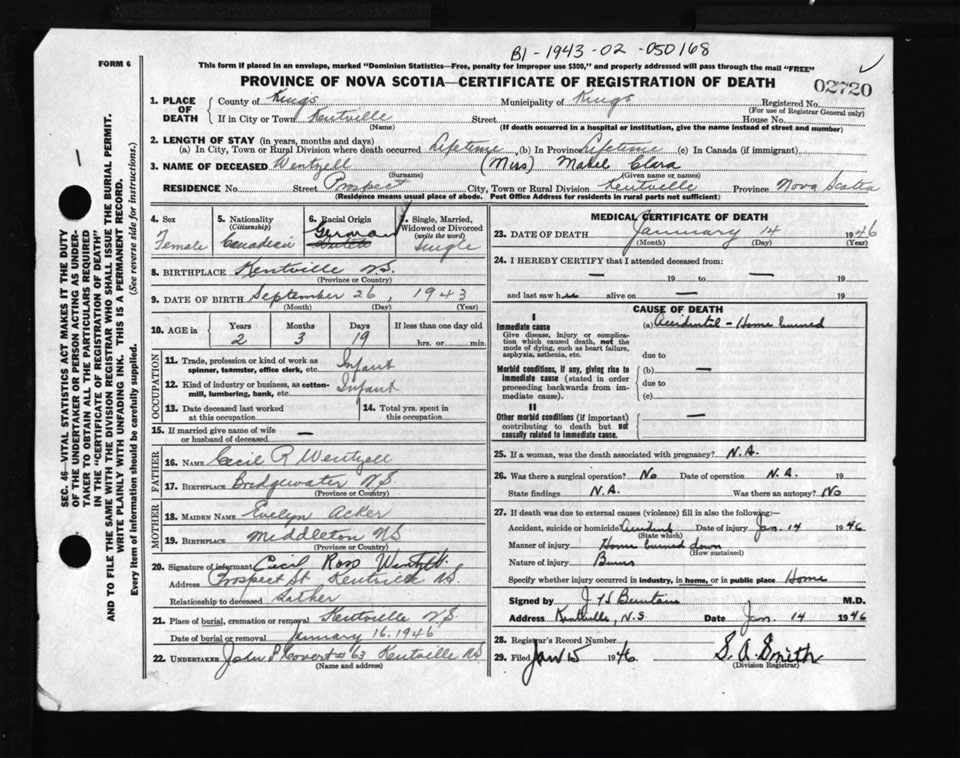 B1-1943-02-050168
FORM 6
This form if placed in an envelope, marked "Dominion Statistics—Free, penalty for improper use $300," and properly addressed will pass through the mail "FREE"
PROVINCE OF NOVA SCOTIA—CERTIFICATE OF REGISTRATION OF DEATH
02720
1. PLACE OF DEATH
County of Kings Municipality of Kings Registered No.
(For use of Registrar General only)
If in City or Town Kentville Street House No.
(Name) (If death occurred in a hospital or institution, give the name instead of street and number)
2. LENGTH OF STAY (in years, months and days)
(a) In City, Town or Rural Division where death occurred Lifetime (b) In Province Lifetime (c) In Canada (if immigrant)
3. NAME OF DECEASED Wentzell (Miss) Mabel Clara
(Surname) (Given name or names)
RESIDENCE No. Street Prospect City, Town or Rural Division Kentville Province Nova Scotia
(Residence means usual place of abode. Post Office Address for residents in rural parts not sufficient)
4. Sex
Female
5. Nationality
(Citizenship)
Canadian
6. Racial Origin
German
7. Single, Married, Widowed or Divorced
(write the word)
Single
8. BIRTHPLACE Kentville N.S.
(Province or Country)
9. DATE OF BIRTH September 26, 1943
(Month) (Day) (Year)
10. AGE in
Years Months Days If less than one day old
2 3 19 hrs. or min.
OCCUPATION
11. Trade, profession or kind of work as spinner, teamster, office clerk, etc. Infant
12. Kind of industry or business, as cotton-mill, lumbering, bank, etc. Infant
13. Date deceased last worked at this occupation
14. Total yrs. spent in this occupation
15. If married give name of wife or husband of deceased —
FATHER
16. NAME Cecil R Wentzell
17. BIRTHPLACE Bridgewater N.S.
(Province or Country)
MOTHER
18. MAIDEN NAME Evelyn Acker
19. BIRTHPLACE Middleton NS
(Province or Country)
20. Signature of informant Cecil Ross Wentzell
Address Prospect St Kentville N.S.
Relationship to deceased Father
21. Place of burial, cremation or removal Kentville N.S.
Date of burial or removal January 16, 1946
22. UNDERTAKER John P Covert #63 Kentville NS
(Name and address)
MEDICAL CERTIFICATE OF DEATH
23. DATE OF DEATH January 14 1946
(Month) (Day) (Year)
24. I HEREBY CERTIFY that I attended deceased from:
— 19 to — 19
and last saw her alive on — 19
CAUSE OF DEATH
I
Immediate cause
Give disease, injury or complication which caused death, not the mode of dying, such as heart failure, asphyxia, asthenia, etc.
(a) Accidental - Home burned
due to
Morbid conditions, if any, giving rise to immediate cause (stated in order proceeding backwards from immediate cause).
(b) —
due to
(c)
II
Other morbid conditions (if important) contributing to death but not causally related to immediate cause.
—
25. If a woman, was the death associated with pregnancy? N.A.
26. Was there a surgical operation? No Date of operation N.A. 19
State findings N.A. Was there an autopsy? No
27. If death was due to external causes (violence) fill in also the following:—
Accident, suicide or homicide? Accident Date of injury Jan. 14 1946
(State which)
Manner of injury Home burned down
(How sustained)
Nature of injury Burns
Specify whether injury occurred in industry, in home, or in public place Home
Signed by M.D.
Address Kentville, N.S Date Jan. 14 1946
28. Registrar's Record Number
29. Filed Jan 15 1946 S. A. Smith
(Division Registrar)
SEC. 46—VITAL STATISTICS ACT MAKES IT THE DUTY
OF THE UNDERTAKER OR PERSON ACTING AS UNDER-
TAKER TO OBTAIN ALL THE PARTICULARS REQUIRED
IN THE "CERTIFICATE OF REGISTRATION OF DEATH"
AND TO FILE THE SAME WITH THE DIVISION REGISTRAR WHO SHALL ISSUE THE BURIAL PERMIT.
WRITE PLAINLY WITH UNFADING INK. THIS IS A PERMANENT RECORD.
Every item of information should be carefully supplied. (See reverse side for instructions.)